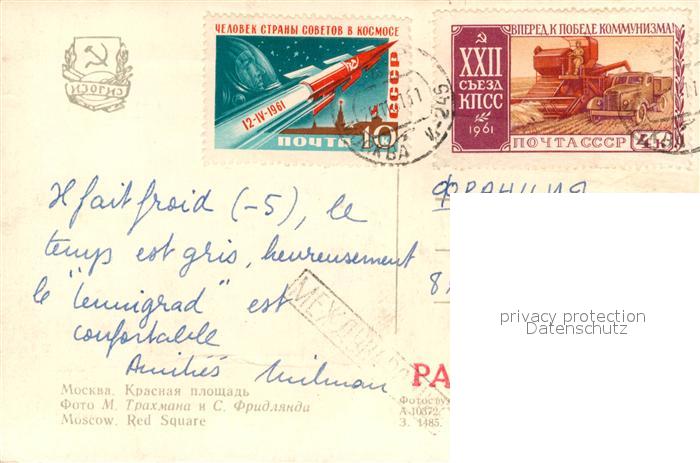 ИЗОГИЗ
ЧЕЛОВЕК СТРАНЫ СОВЕТОВ В КОСМОСЕ
12-IV-1961
ПОЧТА 10К
СССР
ВПЕРЕД, К ПОБЕДЕ КОММУНИЗМА!
XXII
СЪЕЗД
КПСС
1961
ПОЧТА СССР 4к
МОСКВА
ФРАНЦИЯ
Il fait froid (-5), le
temps est gris, heureusement
le "Lennigrad" est
confortable
Amitiés Milman
МЕЖДУН
8
PA
privacy protection
Datenschutz
Москва. Красная площадь
Фото М. Трахмана и С. Фридлянда
Moscow. Red Square
Фотогруж
А-10372.
З. 1485.